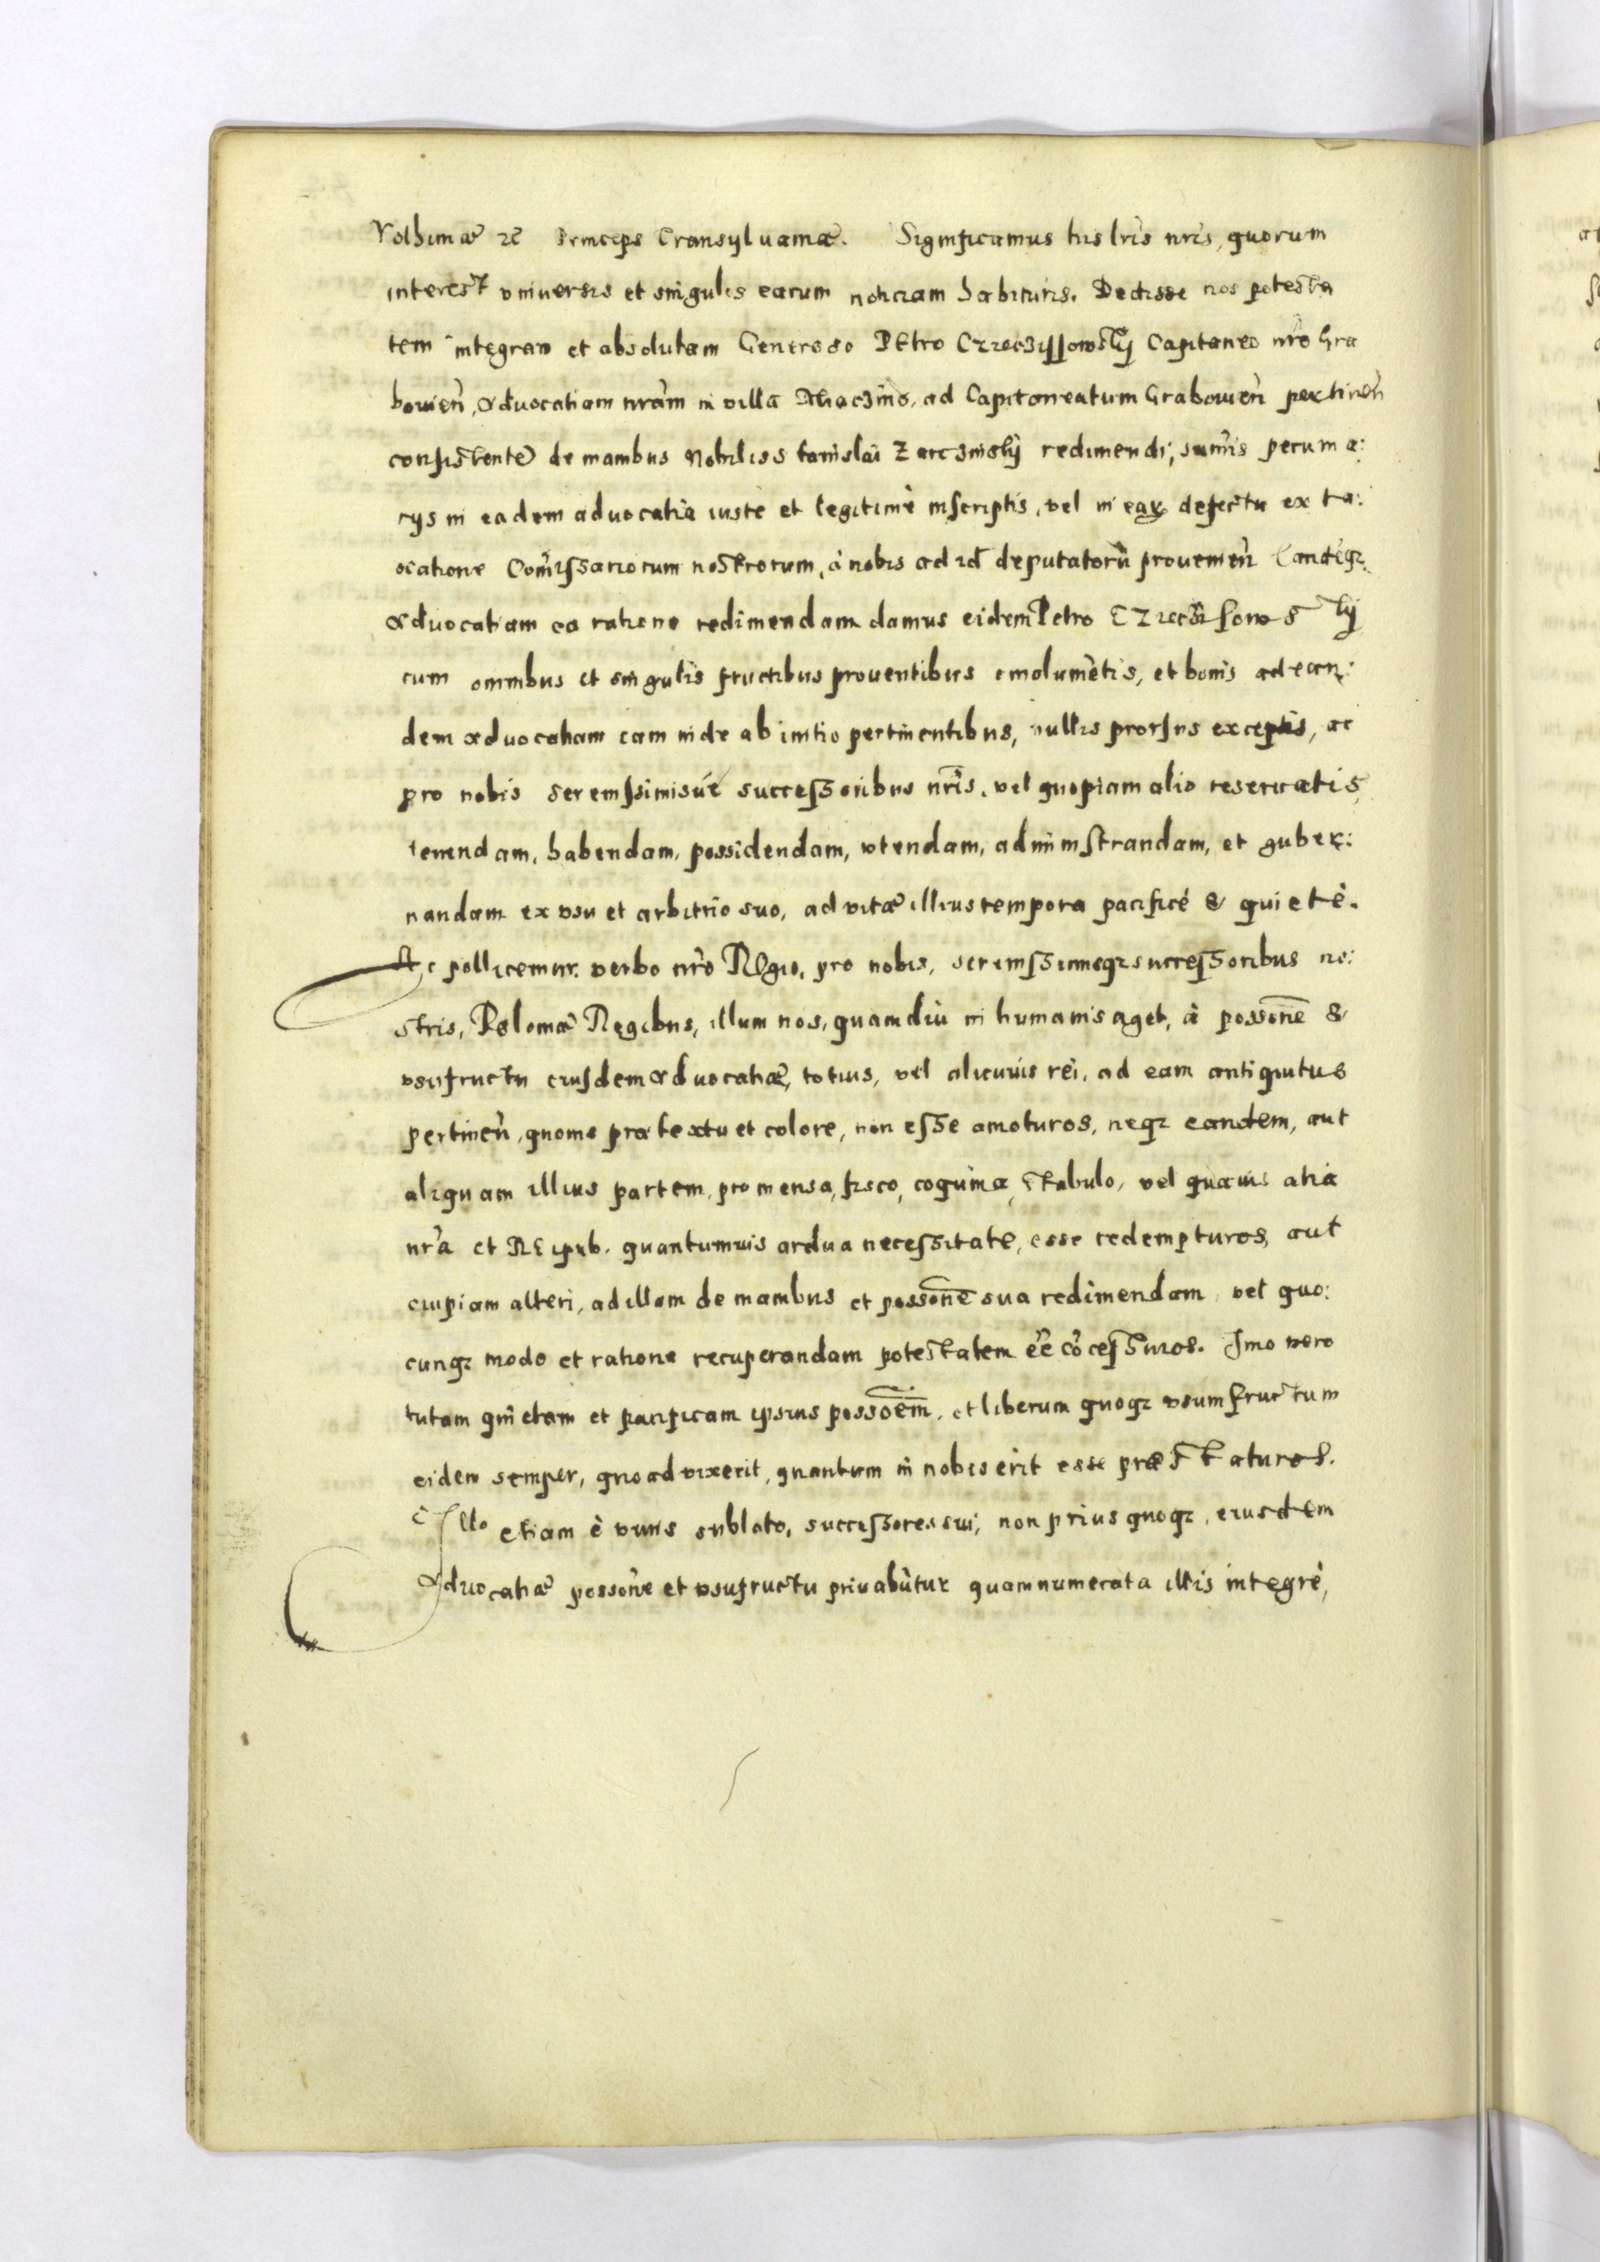 Volhiniæ zc̃ Princeps Transyluaniæ. Significamus his lr̃is nr̃is, quorum
interest vniuersis et singulis earum noticiam habituris. Dedisse nos potesta
tem integram et absolutam Generoso Petro Capitaneo nr̃o Gra
bouien̄, aduocatiam nr̃am in villa ad Capitaneatum Grabouien̄ pertinen̄
consistente de manibus Nobilis Stanislai redimendi, sum̃is pecunia:
rijs in eadem aduocatia iuste et legitimè inscriptis, vel in ear defectu ex ta:
xatione Com̃issariorum nostrorum, à nobis ad id deputatorū prouenien̄ Eandēqz
aduocatiam ea ratione redimendam damus eidem Petro
cum omnibus et singulis fructibus prouentibus emolumētis, et bonis ad ean:
dem aduocatiam iam inde ab initio pertinentibus, nullis prorsus exceptis, ac
pro nobis serenissimisué successoribus nr̃is, vel quopiam alio reseruatis
tenendam, habendam, possidendam, vtendam, administrandam, et guber:
nandam ex vsu et arbitrio suo, ad vitæ illius tempora pacificé & quietè.
Ac pollicemur verbo nr̃o Regio, pro nobis, serenissimisqz successoribus no:
stris, Poloniæ Regibus, illum nos, quamdiù in humanis aget, à possōne &
vsufructu eiusdem aduocatiæ, totius, vel alicuius rei, ad eam antiquitus
pertinen̄, quouis prætextu et colore, non esse amoturos, neqz eandem, aut
aliquam illius partem, pro mensa, fisco, coquina, stabulo, vel quauis alia
nr̃a et Reipub. quantumuis ardua necessitate, esse redempturos, aut
cuipiam alteri, ad illam de manibus et possōne sua redimendam, vel quo:
cunqz modo et ratione recuperandam potestatem ēe cōcessuros. Imo vero
tutam quietam et pacificam ipsius possōem, et liberum quoqz vsumfructum
eidem semper, quoad vixerit, quantum in nobis erit esse præstaturos.
Illo etiam è viuis sublato, successores sui, non prius quoqz, eiusdem
aduocatiæ possōne et vsufructu priuabūtur quam numerata illis integrè,